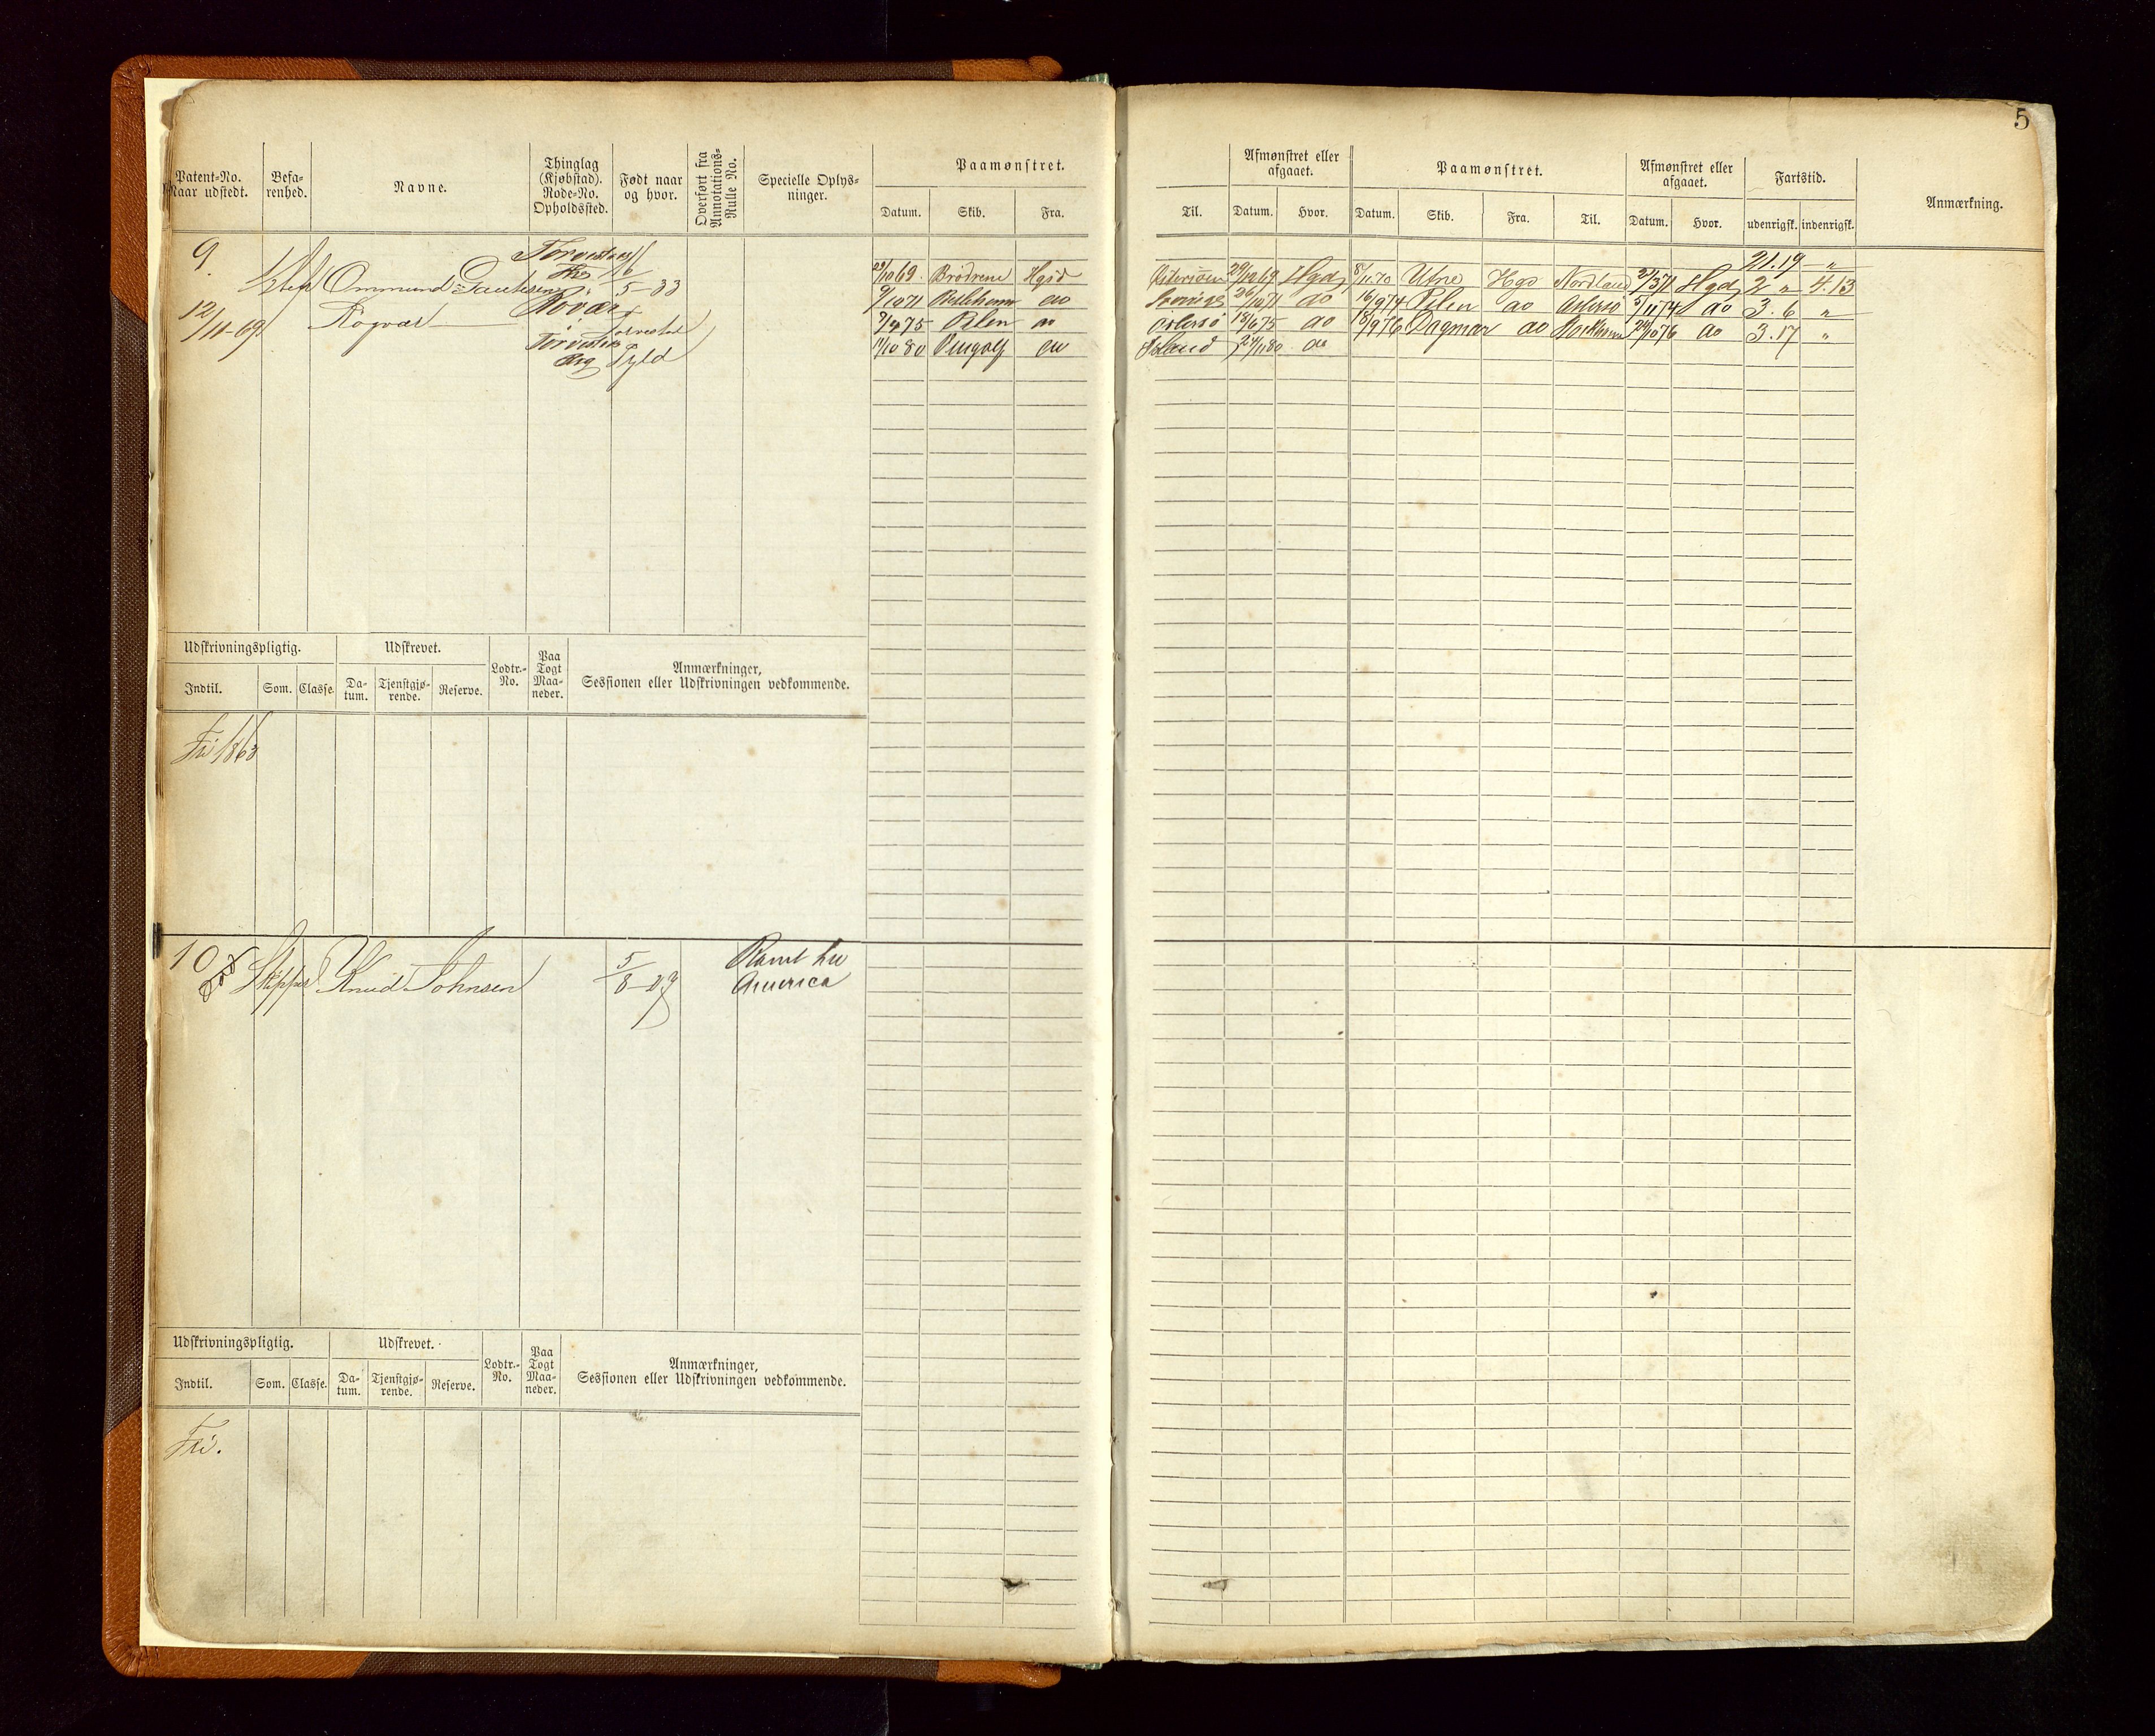 5
Patent-No. Naar udstedt.
Befarenhed.
Navne.
Thinglag (Kjøbstad). Rode-No. Opholdssted.
Født naar og hvor.
Overført fra Annotations-Rulle No.
Specielle Oplysninger.
Paamønstret.
Datum. Skib. Fra.
Til.
Afmønstret eller afgaaet.
Datum. Hvor.
Paamønstret.
Datum. Skib. Fra. Til.
Afmønstret eller afgaaet.
Datum. Hvor.
Fartstid.
udenrigsk. indenrigsk.
Anmærkning.
9
12/11-69
Ommund
Røgvær
Torvestad
Røvær
5-33
Torvestad
21.19 "
Brødrene Hgsd Østersøen 29/10 69 Hgsd 8/11 70 Utne Hgs Nordland Hgsd 2 " 4.13
do 16/9 74 Pilen do Østersø 5/11 74 do 3.6 "
Pilen do Østersø 18/6 75 do 18/9 76 Dagmar do 24/10 76 do 3.17 "
11/10 80 do Island 24/11 80 do
Udskrivningspligtig.
Indtil. Som. Classe.
Udskrevet.
Datum. Tjenstgjørende. Reserve.
Lodtr.-No.
Paa Togt Maaneder.
Anmærkninger, Sessionen eller Udskrivningen vedkommende.
Fri 1863
10
Skipper Knud Johnsen
5/8-
America
Udskrivningspligtig.
Indtil. Som. Classe.
Udskrevet.
Datum. Tjenstgjørende. Reserve.
Lodtr.-No.
Paa Togt Maaneder.
Anmærkninger, Sessionen eller Udskrivningen vedkommende.
Fri.